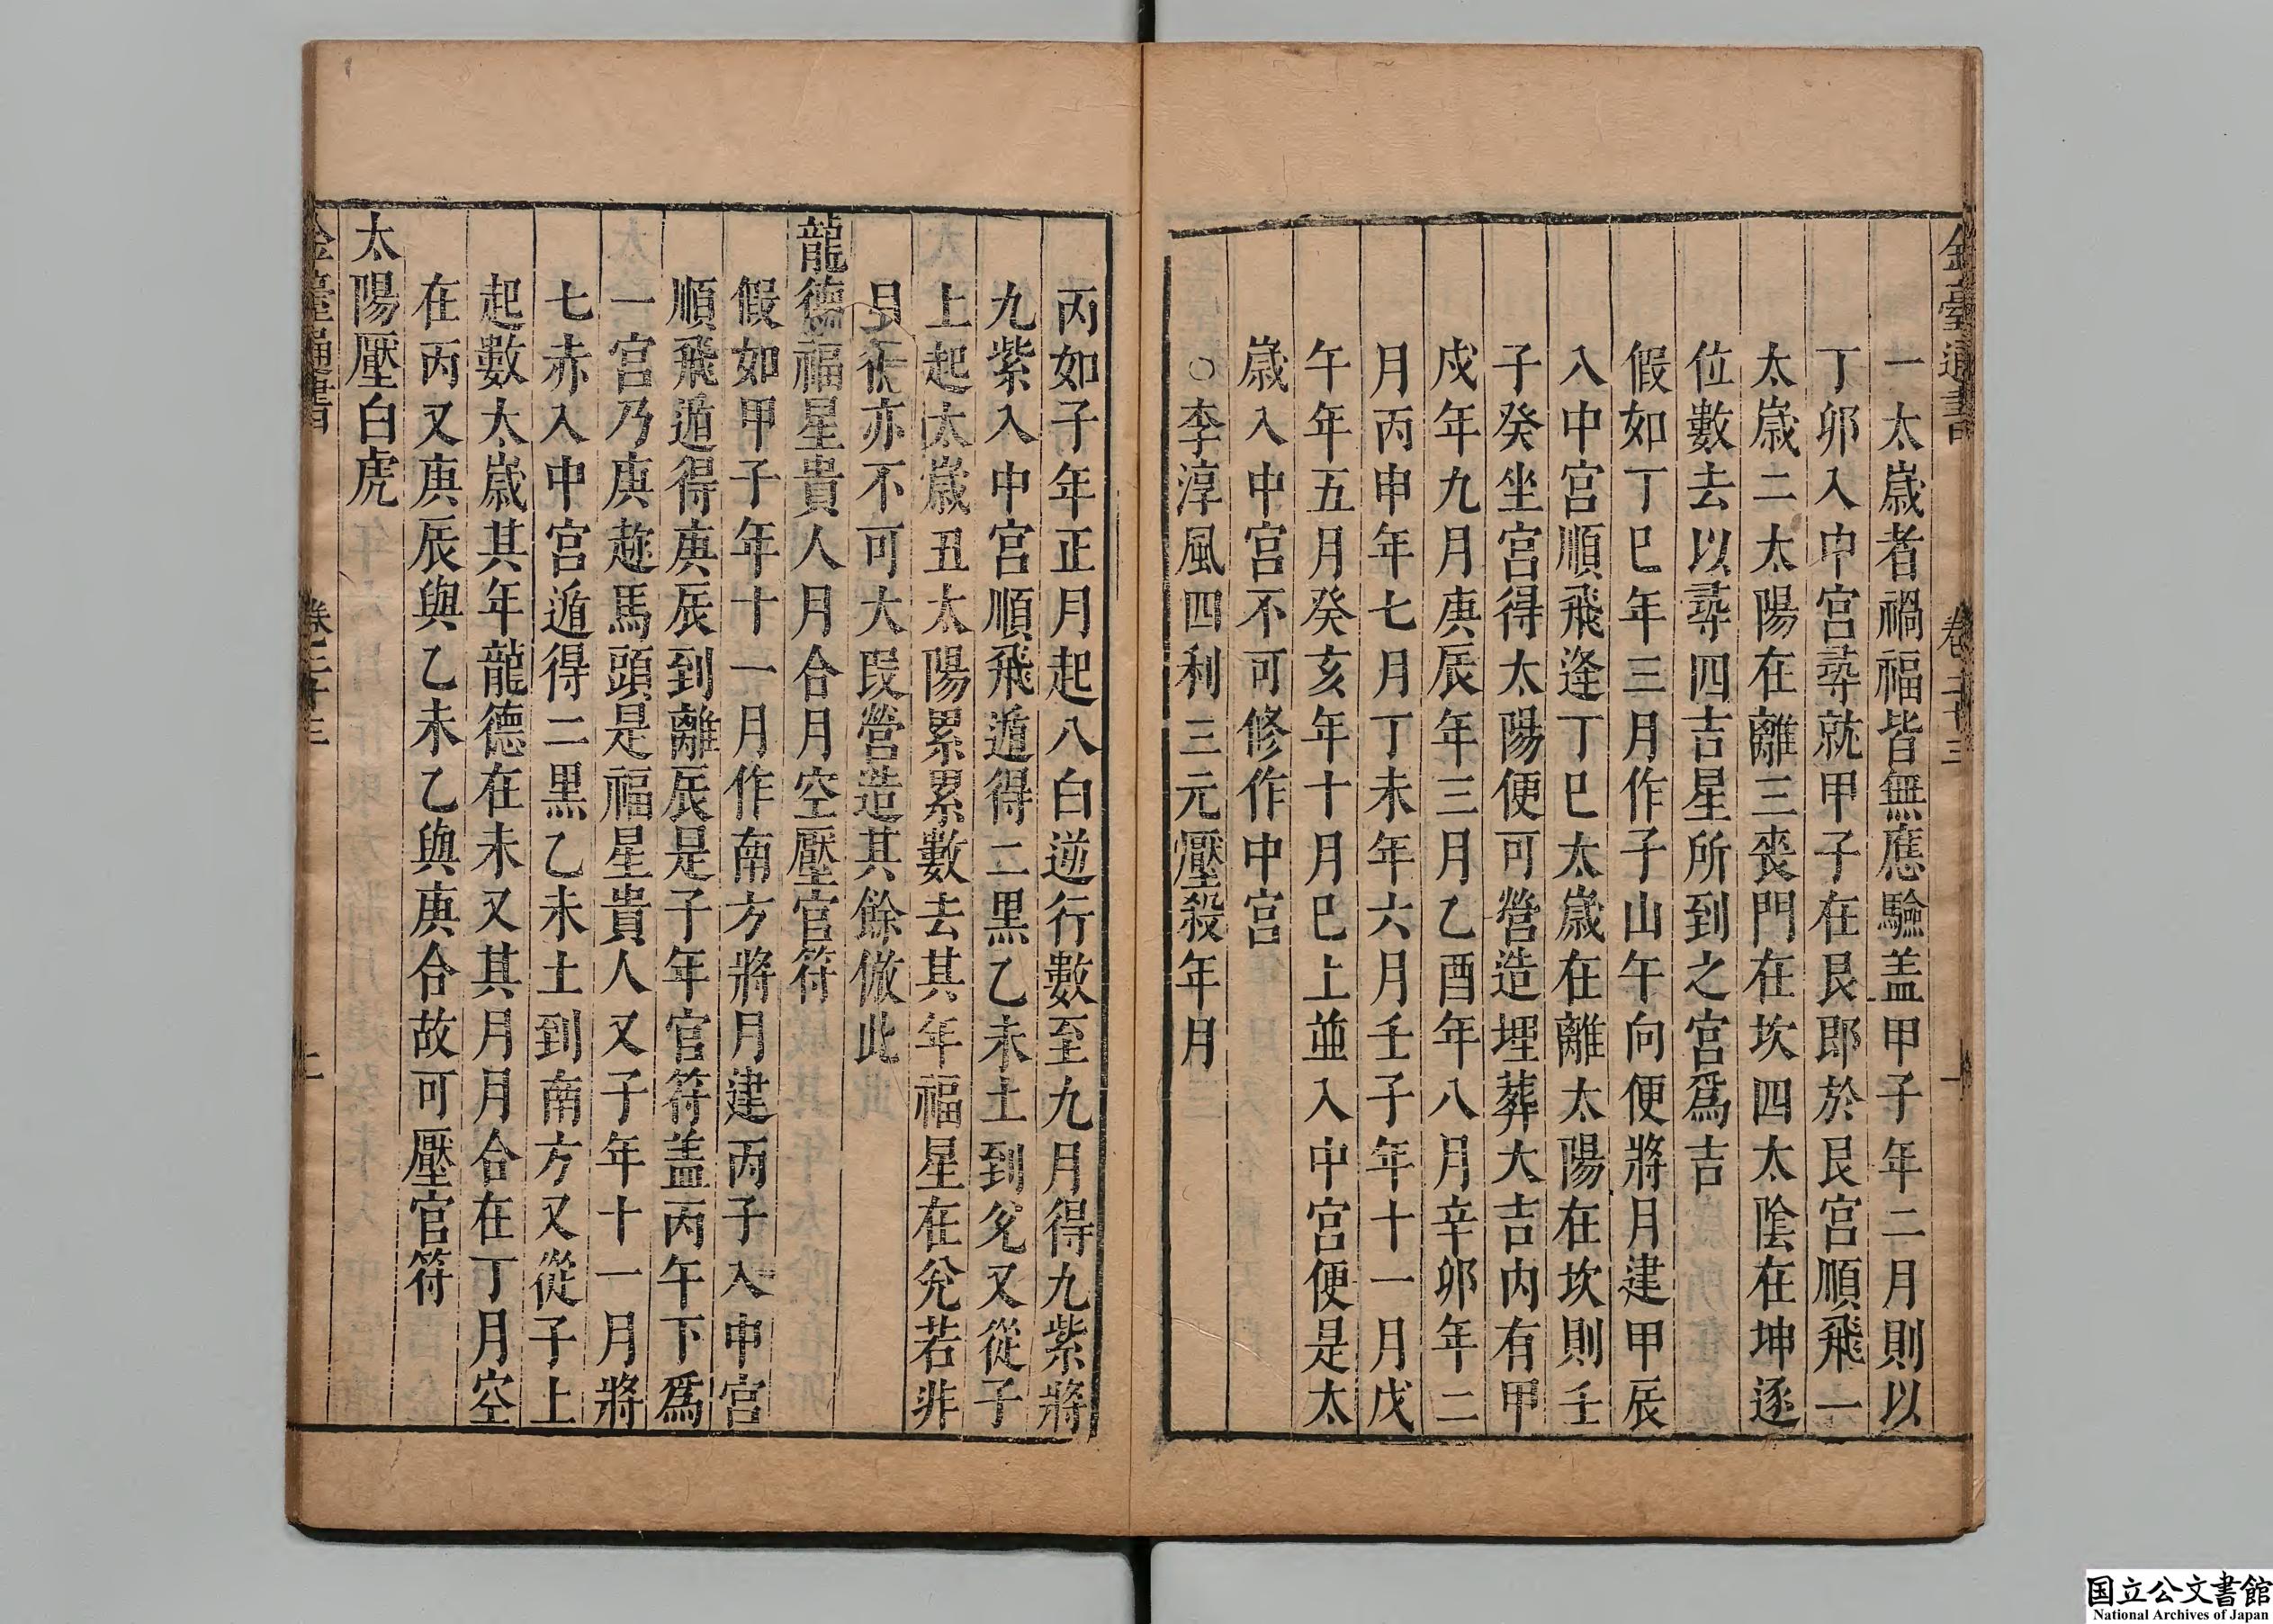 金臺通書 卷二十三 一
一太歲者禍福皆無應驗盖甲子年二月則以
丁卯入中宮尋就甲子在艮郎於艮宮順飛一
太歲二太陽在離三喪門在坎四太陰在坤逐
位數去以尋四吉星所到之宮爲吉
假如丁巳年三月作子山午向便將月建甲辰
入中宮順飛逢丁巳太歲在離太陽在坎則壬
子癸坐宮得太陽便可營造埋葬大吉内有甲
戍年九月庚辰年三月乙酉年八月辛卯年二
月丙申年七月丁未年六月壬子年十一月戊
午年五月癸亥年十月巳上並入中宮便是太
歲入中宮不可修作中宮
○李淳風四利三元壓殺年月
丙如子年正月起八白逆行數至九月得九紫將
九紫入中宮順飛遁得二黑乙未土到兊又從子
上起太歲丑太陽累累數去其年福星在兊若非
月後亦不可大段營造其餘倣此
龍德福星貴人月合月空壓官符
假如甲子年十一月作南方將月建丙子入中宮
順飛遁得庚辰到離辰是子年官符盖丙午下爲
一宮乃庚趂馬頭是福星貴人又子年十一月將
七赤入中宮遁得二黒乙未土到南方又從子上
起數太歲其年龍德在未又其月月合在丁月空
在丙又庚辰與乙未乙與庚合故可壓官符
太陽壓白虎
金臺通書 卷二十三
国立公文書館
National Archives of Japan